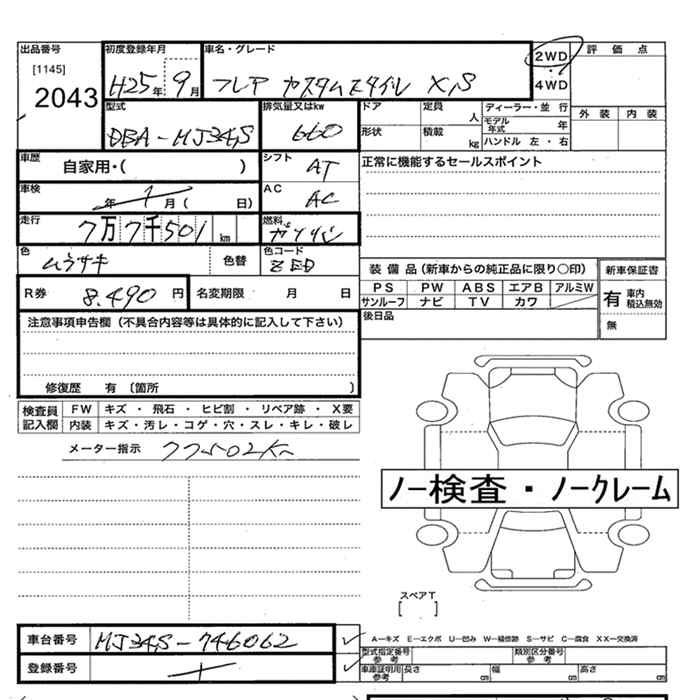 出品番号 初度登録年月 車名・グレード 2WD 評価点
[1145] H25年 9月 フレア カスタムスタイル XS ・
2043 4WD
型式 排気量又はkw ドア 定員 人 ディーラー・並 行 外装 内装
DBA-MJ34S 660 形状 積載 kg モデル年式 年
ハンドル 左・右
車歴 自家用・( ) シフト AT 正常に機能するセールスポイント
車検 年 月( 日) AC AC
走行 7万7千501km 燃料 ガソリン
色 ムラサキ 色替 色コード ZED 装備品(新車からの純正品に限り○印) 新車保証書
R券 8.490円 名変期限 月 日 PS PW ABS エアB アルミW 有 車内積込無効
サンルーフ ナビ TV カワ
注意事項申告欄(不具合内容等は具体的に記入して下さい) 後日品 無
修復歴 有 〔箇所 〕
検査員記入欄 FW キズ・飛石・ヒビ割・リペア跡・X要
内装 キズ・汚レ・コゲ・穴・スレ・キレ・破レ
メーター指示 77502Km
ノー検査・ノークレーム
スペアT
[ ]
車台番号 MJ34S-746062 A-キズ E-エクボ U-凹み W-補修跡 S-サビ C-腐食 XX-交換済
型式指定番号 参考 類別区分番号 参考
登録番号 車庫証明用 参考 長さ cm 幅 cm 高さ cm